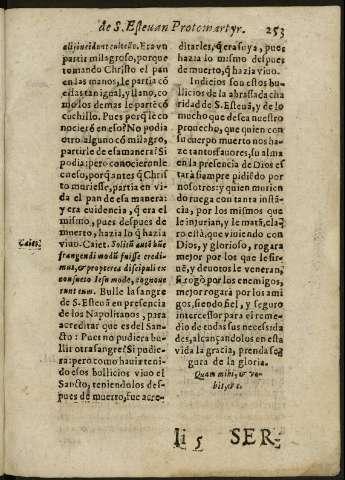 de S. Esteuan Protomartyr. 253
alij incidunt cultello. Era vn
partir milagroso, porque
tomando Christo el pan
en las manos, le partia cõ
estas tan igual, y llano, co
mo los demas le partẽ cõ
cuchillo. Pues porq̃ le co
nocierõ en eso? No podia
otro alguno cõ milagro,
partirle de esa manera? Si
podia: pero conocieronle
en eso, porq̃ antes q̃ Chris
to muriesse, partia en vi-
da el pan de esa manera:
y era euidencia, q̃ era el
mismo, pues despues de
muerto, hazia lo q̃ hazia
viuo. Caiet. Solitũ autẽ hũc
Caiet.
frangendi modũ fuisse credi-
mus, & propterea discipuli ex
consueto Iesu modo, cognoue
runt eum. Bulle la sangre
de S. Esteuã en presencia
de los Napolitanos, para
acreditar que es del San-
cto: Pues no pudiera bu-
llir otra sangre? Si pudie-
ra: pero como hauia teni-
do esos bullicios viuo el
Sancto, teniendolos des-
pues de muerto, fue acre-
ditarles, q̃ era suya, pues
hazia lo mismo despues
de muerto, q̃ hazia viuo.
Indicios son estos bu-
llicios de la abrasada cha
ridad de S. Esteuã, y de lo
mucho que desea nuestro
prouecho, que quien con
su cuerpo muerto nos ha-
ze tantos fauores, su alma
en la presencia de Dios es
tarà siempre pidiẽdo por
nosotros: y quien murien
do ruega con tanta instã-
cia, por los mismos que
le injurian, y le matã, cla-
ro està, que viuiendo con
Dios, y glorioso, rogara
mejor por los que le sir-
uẽ, y deuotos le veneran,
si rogò por los enemigos,
mejor rogarà por los ami
gos, siendo fiel, y seguro
intercessor para el reme-
dio de todas sus necessida
des, alcançandolos en esta
vida la gracia, prenda se-
gura de la gloria.
Quam mihi, & vo-
bis, &c.
Ii 5 SER-